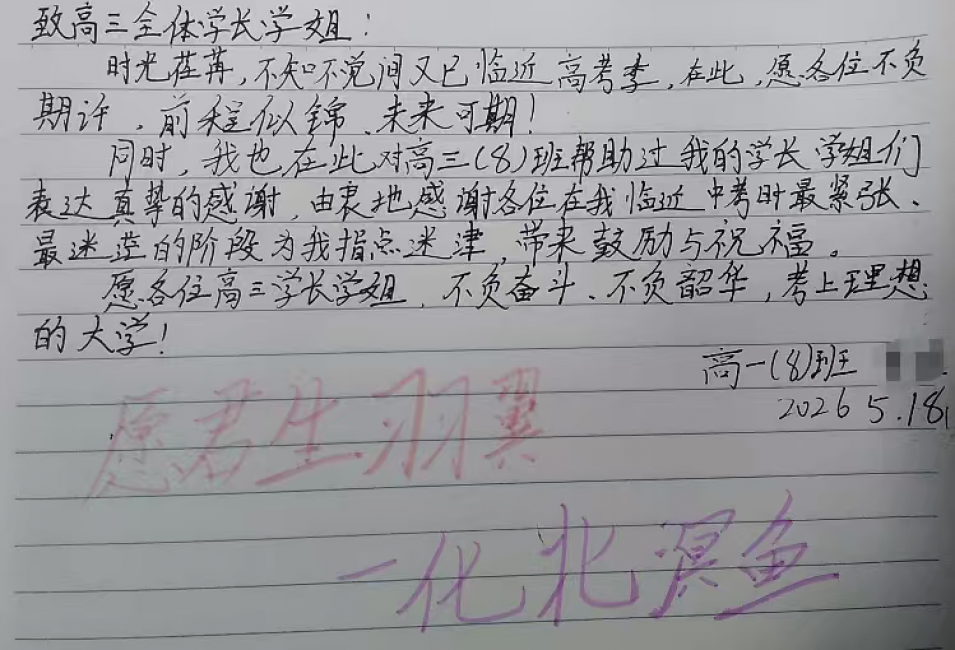 致高三全体学长学姐：
时光荏苒，不知不觉间又已临近高考季，在此，愿各位不负
期许，前程似锦、未来可期！
同时，我也在此对高三(8)班帮助过我的学长学姐们
表达真挚的感谢，由衷地感谢各位在我临近中考时最紧张、
最迷茫的阶段为我指点迷津，带来鼓励与祝福。
愿各位高三学长学姐，不负奋斗、不负韶华，考上理想
的大学！
高一(8)班
2026 5.18
愿君生羽翼
一化北溟鱼